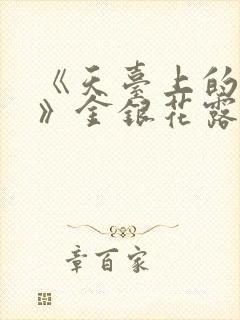 《天臺上的
》金銀花露
章百家